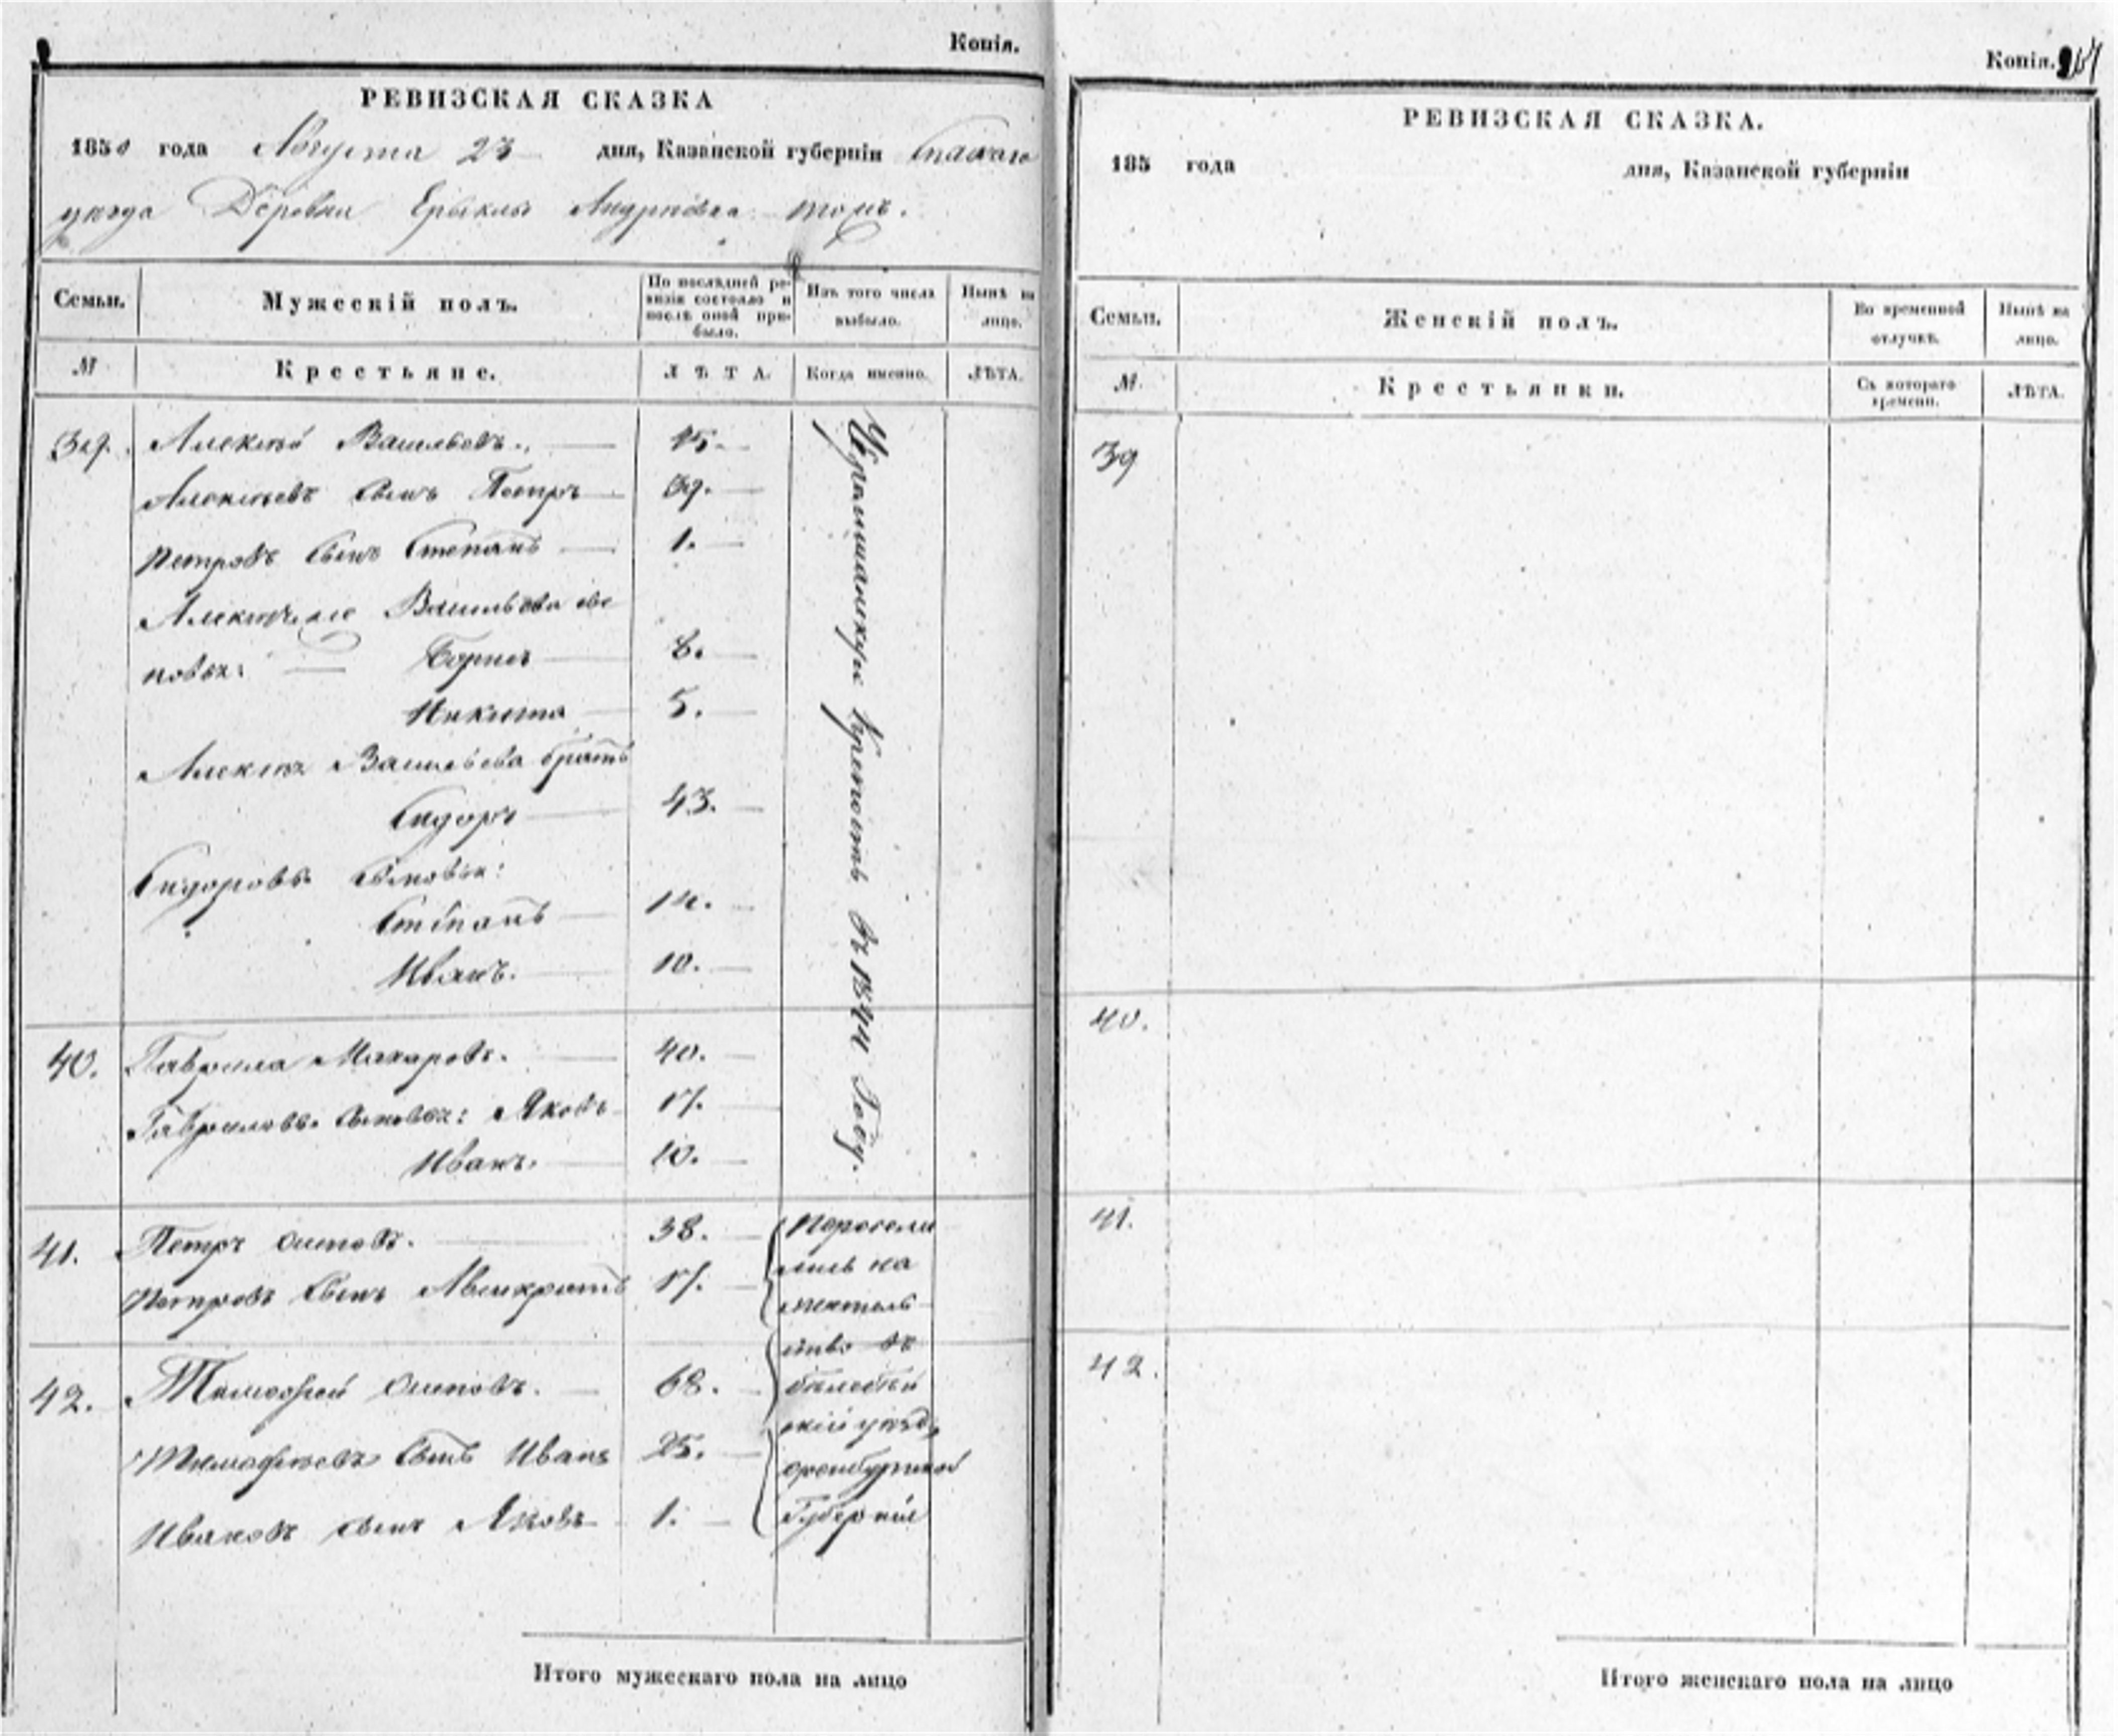 Копія.
РЕВИЗСКАЯ СКАЗКА
1850 года Августа 23 дня, Казанской губерніи Спаскаго
уѣзда Деревни Ерыклы Андреевка тожъ.
Семьи. Мужескій полъ. По послѣдней ревизіи состояло и послѣ оной прибыло. Изъ того числа выбыло. Нынѣ на лицо.
№ Крестьяне. ЛѢТА. Когда именно. ЛѢТА.
39. Алексѣй Васильевъ. 45.
Алексѣевъ сынъ Петръ 39.
Петровъ сынъ Степанъ 1.
Алексѣя Васильева сы
новья: Борисъ 8.
Никита 5.
Алексѣя Васильева братъ
Сидоръ 43.
Сидоровы сыновья:
Степанъ 14.
Иванъ. 10.
крепость въ 1844 Году.
40. Гаврила Макаровъ. 40.
Гавриловы сыновья: Яковъ 17.
Иванъ. 10.
41. Петръ Осиповъ. 38.
Петровъ сынъ 17.
42. Тимофей Осиповъ. 68.
Тимофеевъ сынъ Иванъ 25.
Ивановъ сынъ Яковъ 1.
Пересели
лись на
житель
ство въ
белебей
скій уѣздъ,
оренбургской
Губерніи
Итого мужескаго пола на лицо
Копія.
РЕВИЗСКАЯ СКАЗКА.
185 года дня, Казанской губерніи
Семьи. Женскій полъ. Во временной отлучкѣ. Нынѣ на лицо.
№ Крестьянки. Съ котораго времени. ЛѢТА.
39
40.
41.
42.
Итого женскаго пола на лицо